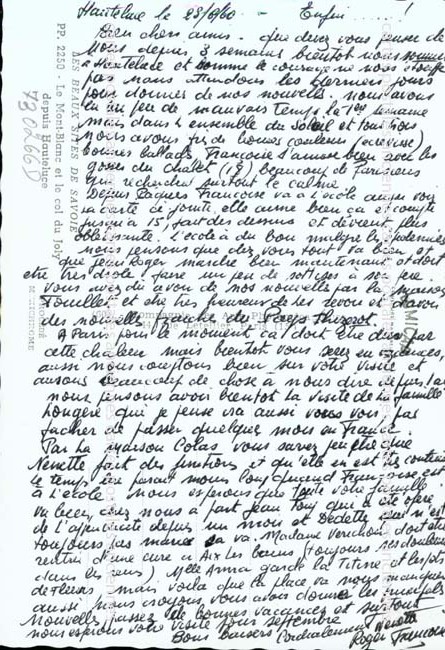 Hauteluce le 28/8/60. Enfin ..... !
Bien chers amis. que devez vous penser de
nous depuis 3 semaines bientôt nous sommes
a Hauteluce et comme le courage ne nous étouffe
pas nous attendons les derniers jours
pour donner de nos nouvelles. nous avons
eu un peu de mauvais temps la 1ère semaine
mais dans l'ensemble du Soleil et tous trois
nous avons pris de bonnes couleurs
bonnes ballades Françoise s'amuse bien avec les
gosses du chalet (19) beaucoup de Parisiens
qui recherchent surtout le calme
Depuis Pâques Francoise va a l'école
sa carte ci jointe elle aime bien ça et compte
jusqu'a 15, fait des dessins et devient plus
obéissante. l'école a du bon malgré
nous pensons que chez vous tout va bien
que Jean Roger marche bien maintenant et doit
etre tres drole faire un peu de sottises a son père
vous avez du avoir de nos nouvelles par la maison
Fouillet et etre tres heureux de les revoir et d'avoir
des nouvelles fraiches de
A Paris pour le moment ca doit être desert par
cette chaleur mais bientot vous serez en vacances
aussi nous comptons bien sur votre visite et
aurons beaucoup de chose a nous dire depuis l'an
nous pensons avoir bientot la visite de la famille
Longère qui je pense ira aussi vous voir, pas
facher de passer quelques mois en France
Par la maison Colas vous savez peut etre que
Nenette fait des finitions et qu'elle en est tres contente
le temps lui parait moins long quand Françoise est
a l'école. nous esperons que toute votre famille
va bien, chez nous a part Jean Tony qui a ete opéré
de l'appendicite depuis un mois et Dedette qui n'est
toujours pas mariée ca va. Madame Verchère doit etre
rentrée d'une cure a Aix les bains (toujours ses douleurs
dans les reins). Melle Anna garde la Titine et les pots
de fleurs, mais voila que la place va nous manquer
aussi nous croyons vous avoir donné les principales
nouvelles, passez de bonnes vacances et surtout
nous esperons votre visite pour septembre
Bons baisers Cordialement Nenette
Roger Francoise
LES BEAUX SITES DE SAVOIE
PP. 2250 - Le Mont-Blanc et le col du Joly
depuis Hauteluce